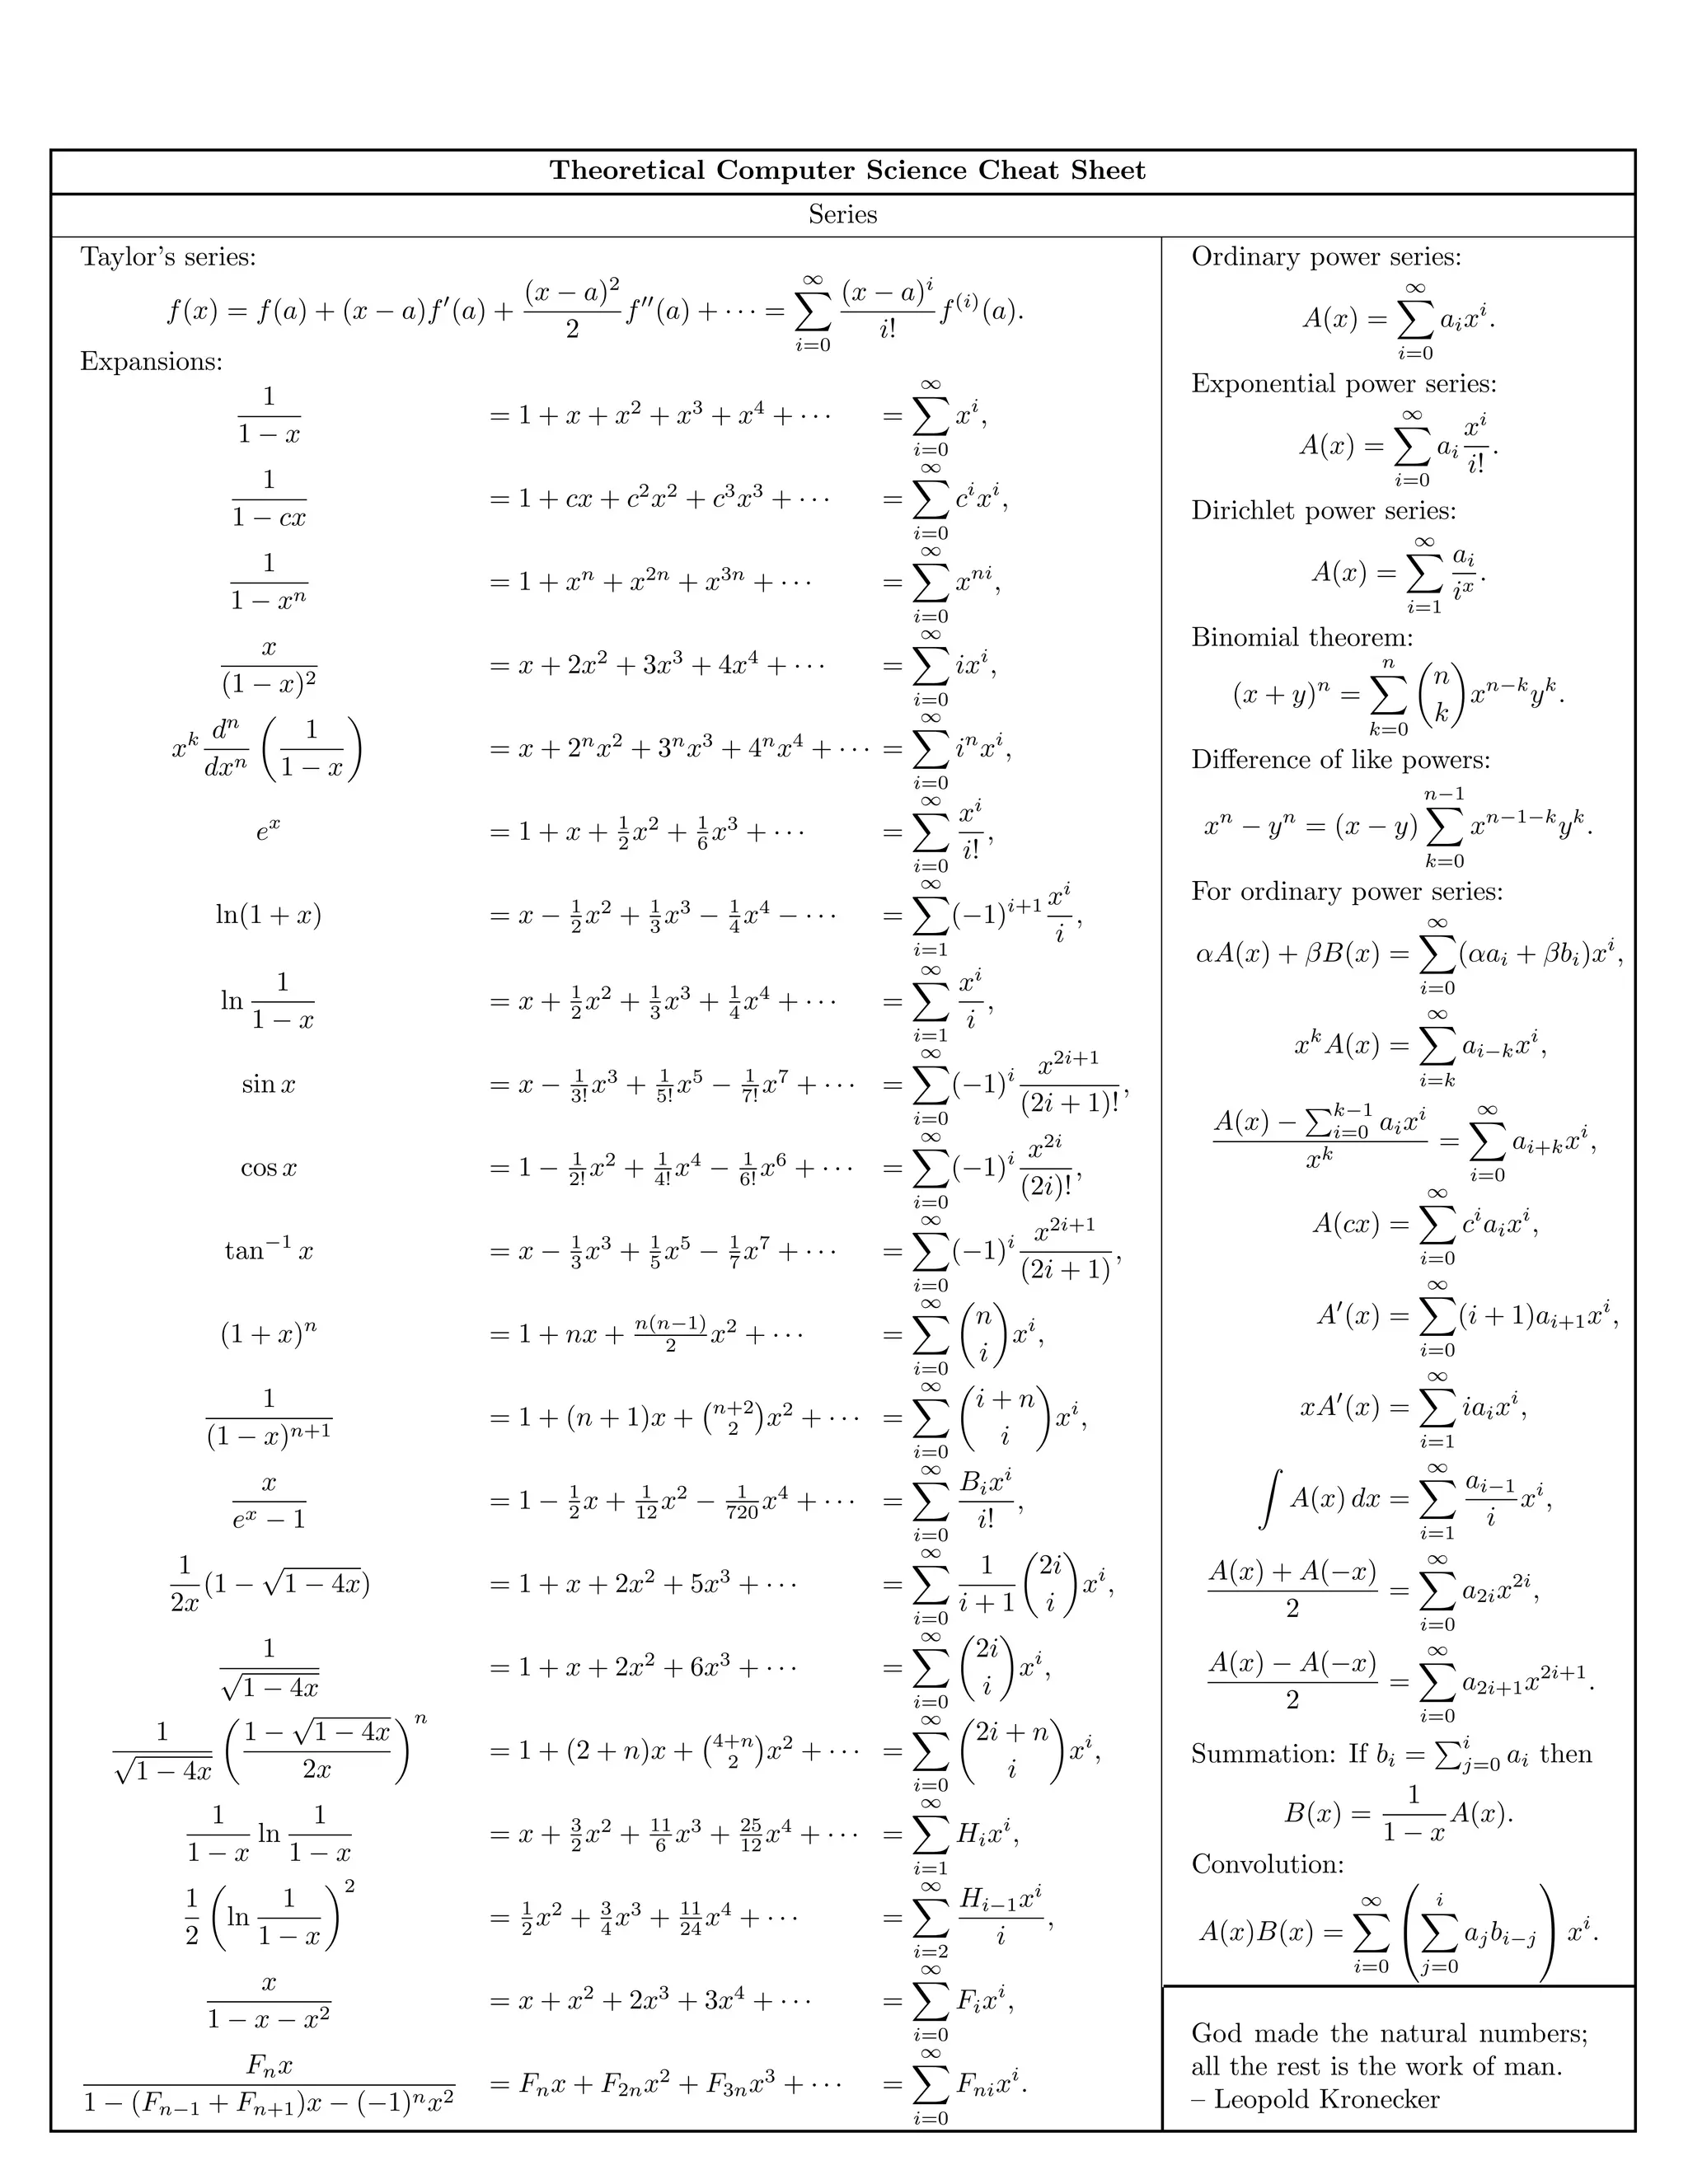 Theoretical Computer Science Cheat Sheet
Series
Taylor's series:
f(x) = f(a) + (x − a)f′(a) + \frac{(x − a)^2}{2} f″(a) + ⋯ = \sum_{i=0}^{∞} \frac{(x − a)^i}{i!} f^{(i)}(a).
Expansions:
\frac{1}{1 − x} = 1 + x + x^2 + x^3 + x^4 + ⋯ = \sum_{i=0}^{∞} x^i,
\frac{1}{1 − cx} = 1 + cx + c^2x^2 + c^3x^3 + ⋯ = \sum_{i=0}^{∞} c^i x^i,
\frac{1}{1 − x^n} = 1 + x^n + x^{2n} + x^{3n} + ⋯ = \sum_{i=0}^{∞} x^{ni},
\frac{x}{(1 − x)^2} = x + 2x^2 + 3x^3 + 4x^4 + ⋯ = \sum_{i=0}^{∞} ix^i,
x^k \frac{d^n}{dx^n} \left( \frac{1}{1 − x} \right) = x + 2^n x^2 + 3^n x^3 + 4^n x^4 + ⋯ = \sum_{i=0}^{∞} i^n x^i,
e^x = 1 + x + \frac{1}{2}x^2 + \frac{1}{6}x^3 + ⋯ = \sum_{i=0}^{∞} \frac{x^i}{i!},
ln(1 + x) = x − \frac{1}{2}x^2 + \frac{1}{3}x^3 − \frac{1}{4}x^4 − ⋯ = \sum_{i=1}^{∞} (−1)^{i+1} \frac{x^i}{i},
ln \frac{1}{1 − x} = x + \frac{1}{2}x^2 + \frac{1}{3}x^3 + \frac{1}{4}x^4 + ⋯ = \sum_{i=1}^{∞} \frac{x^i}{i},
sin x = x − \frac{1}{3!}x^3 + \frac{1}{5!}x^5 − \frac{1}{7!}x^7 + ⋯ = \sum_{i=0}^{∞} (−1)^i \frac{x^{2i+1}}{(2i + 1)!},
cos x = 1 − \frac{1}{2!}x^2 + \frac{1}{4!}x^4 − \frac{1}{6!}x^6 + ⋯ = \sum_{i=0}^{∞} (−1)^i \frac{x^{2i}}{(2i)!},
tan^{−1} x = x − \frac{1}{3}x^3 + \frac{1}{5}x^5 − \frac{1}{7}x^7 + ⋯ = \sum_{i=0}^{∞} (−1)^i \frac{x^{2i+1}}{(2i + 1)},
(1 + x)^n = 1 + nx + \frac{n(n−1)}{2}x^2 + ⋯ = \sum_{i=0}^{∞} \binom{n}{i} x^i,
\frac{1}{(1 − x)^{n+1}} = 1 + (n + 1)x + \binom{n+2}{2}x^2 + ⋯ = \sum_{i=0}^{∞} \binom{i + n}{i} x^i,
\frac{x}{e^x − 1} = 1 − \frac{1}{2}x + \frac{1}{12}x^2 − \frac{1}{720}x^4 + ⋯ = \sum_{i=0}^{∞} \frac{B_i x^i}{i!},
\frac{1}{2x}(1 − \sqrt{1 − 4x}) = 1 + x + 2x^2 + 5x^3 + ⋯ = \sum_{i=0}^{∞} \frac{1}{i + 1} \binom{2i}{i} x^i,
\frac{1}{\sqrt{1 − 4x}} = 1 + x + 2x^2 + 6x^3 + ⋯ = \sum_{i=0}^{∞} \binom{2i}{i} x^i,
\frac{1}{\sqrt{1 − 4x}} \left( \frac{1 − \sqrt{1 − 4x}}{2x} \right)^n = 1 + (2 + n)x + \binom{4+n}{2}x^2 + ⋯ = \sum_{i=0}^{∞} \binom{2i + n}{i} x^i,
\frac{1}{1 − x} ln \frac{1}{1 − x} = x + \frac{3}{2}x^2 + \frac{11}{6}x^3 + \frac{25}{12}x^4 + ⋯ = \sum_{i=1}^{∞} H_i x^i,
\frac{1}{2} \left( ln \frac{1}{1 − x} \right)^2 = \frac{1}{2}x^2 + \frac{3}{4}x^3 + \frac{11}{24}x^4 + ⋯ = \sum_{i=2}^{∞} \frac{H_{i−1} x^i}{i},
\frac{x}{1 − x − x^2} = x + x^2 + 2x^3 + 3x^4 + ⋯ = \sum_{i=0}^{∞} F_i x^i,
\frac{F_n x}{1 − (F_{n−1} + F_{n+1})x − (−1)^n x^2} = F_n x + F_{2n} x^2 + F_{3n} x^3 + ⋯ = \sum_{i=0}^{∞} F_{ni} x^i.
Ordinary power series:
A(x) = \sum_{i=0}^{∞} a_i x^i.
Exponential power series:
A(x) = \sum_{i=0}^{∞} a_i \frac{x^i}{i!}.
Dirichlet power series:
A(x) = \sum_{i=1}^{∞} \frac{a_i}{i^x}.
Binomial theorem:
(x + y)^n = \sum_{k=0}^{n} \binom{n}{k} x^{n−k} y^k.
Difference of like powers:
x^n − y^n = (x − y) \sum_{k=0}^{n−1} x^{n−1−k} y^k.
For ordinary power series:
αA(x) + βB(x) = \sum_{i=0}^{∞} (αa_i + βb_i)x^i,
x^k A(x) = \sum_{i=k}^{∞} a_{i−k} x^i,
\frac{A(x) − \sum_{i=0}^{k−1} a_i x^i}{x^k} = \sum_{i=0}^{∞} a_{i+k} x^i,
A(cx) = \sum_{i=0}^{∞} c^i a_i x^i,
A′(x) = \sum_{i=0}^{∞} (i + 1)a_{i+1} x^i,
xA′(x) = \sum_{i=1}^{∞} ia_i x^i,
∫ A(x) dx = \sum_{i=1}^{∞} \frac{a_{i−1}}{i} x^i,
\frac{A(x) + A(−x)}{2} = \sum_{i=0}^{∞} a_{2i} x^{2i},
\frac{A(x) − A(−x)}{2} = \sum_{i=0}^{∞} a_{2i+1} x^{2i+1}.
Summation: If b_i = \sum_{j=0}^{i} a_i then
B(x) = \frac{1}{1 − x} A(x).
Convolution:
A(x)B(x) = \sum_{i=0}^{∞} \left( \sum_{j=0}^{i} a_j b_{i−j} \right) x^i.
God made the natural numbers;
all the rest is the work of man.
– Leopold Kronecker